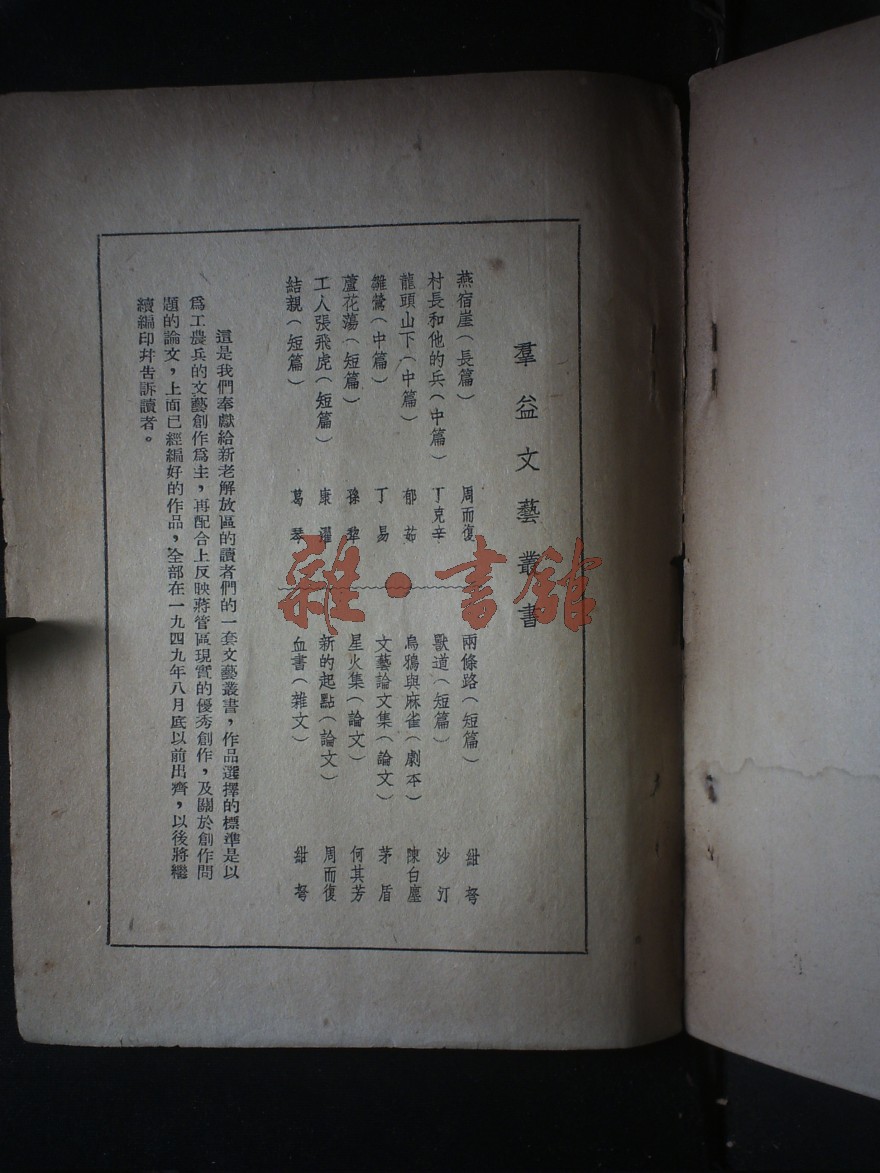 羣益文藝叢書
燕宿崖（長篇） 周而復
村長和他的兵（中篇） 丁克辛
龍頭山下（中篇） 郁茹
雛鶯（中篇） 丁易
蘆花蕩（短篇） 孫犁
工人張飛虎（短篇） 康濯
結親（短篇） 葛琴
兩條路（短篇） 紺弩
獸道（短篇） 沙汀
烏鴉與麻雀（劇本） 陳白塵
文藝論文集（論文） 茅盾
星火集（論文） 何其芳
新的起點（論文） 周而復
血書（雜文） 紺弩
這是我們奉獻給新老解放區的讀者們的一套文藝叢書，作品選擇的標準是以
爲工農兵的文藝創作爲主，再配合上反映蔣管區現實的優秀創作，及關於創作問
題的論文，上面已經編好的作品，全部在一九四九年八月底以前出齊，以後將繼
續編印幷告訴讀者。
雜·書館